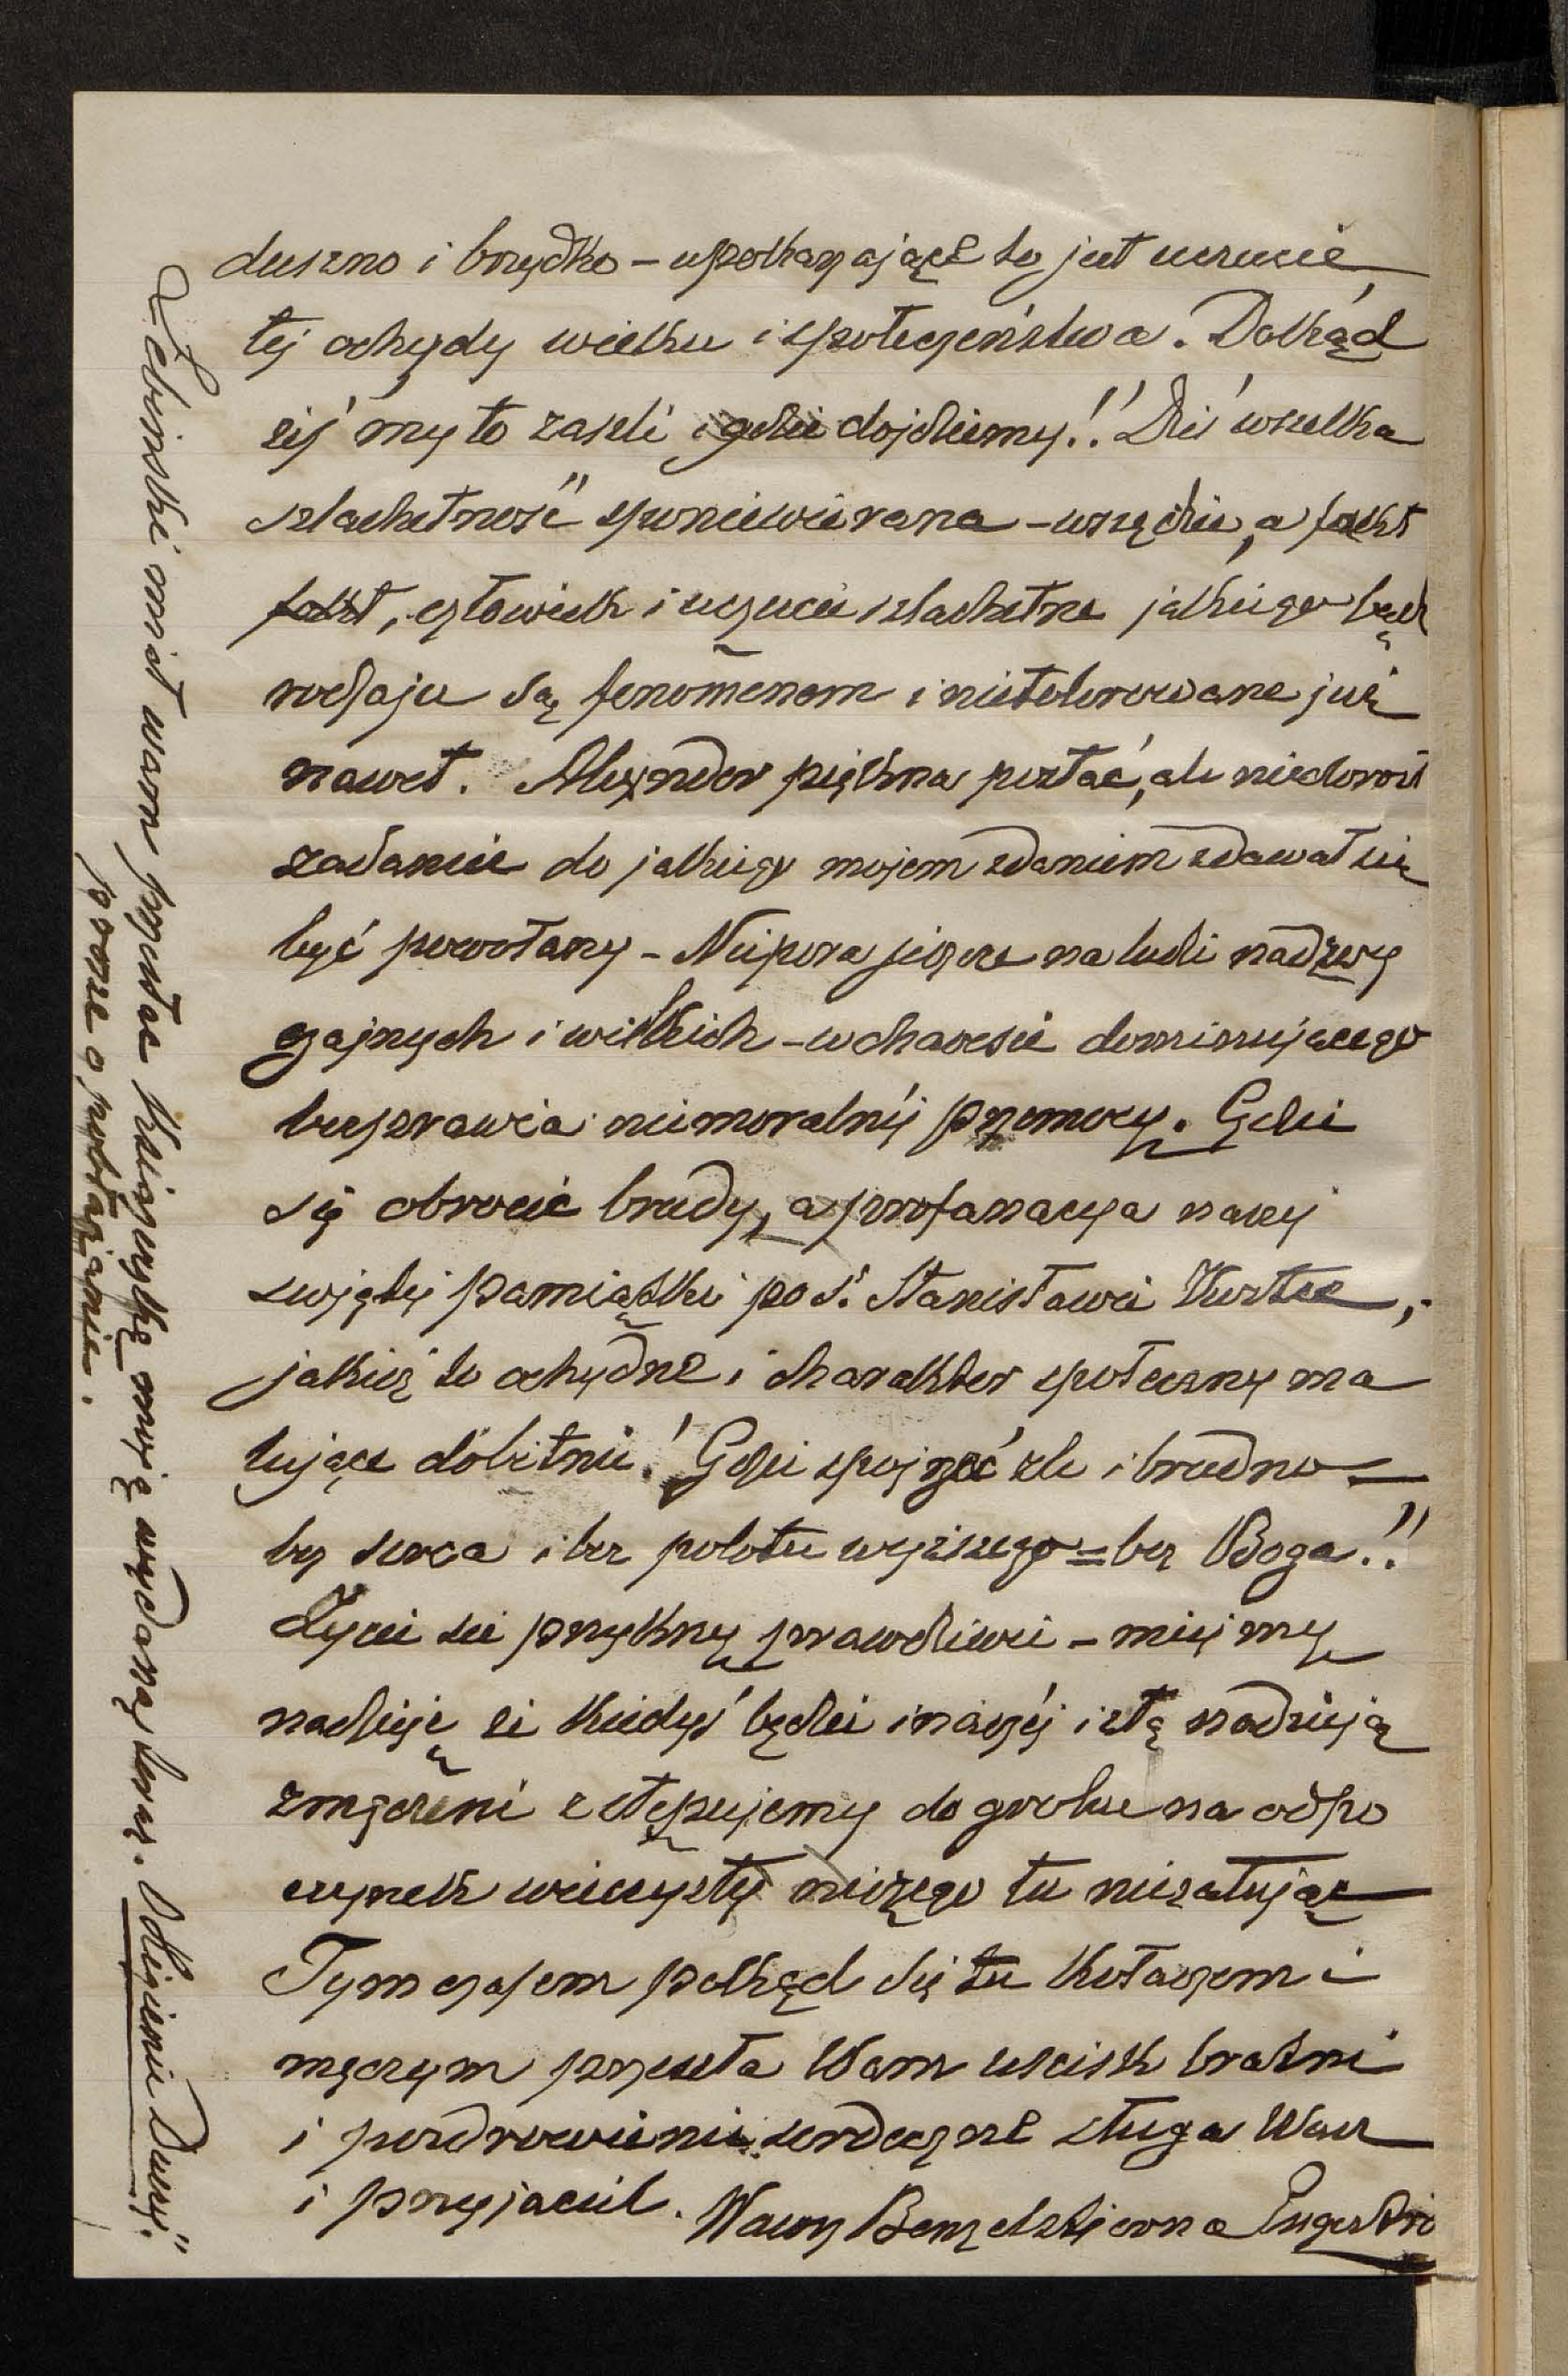 duszno i brzydko – upokarzające to jest uczucie
tej ochydy wieku i społeczeństwa. Dokąd
eiś my to zaszli i gdzie dojdziemy!! Dziś wszelka
szlachetność sponiewierana – wszędzie, a fakt
fakt, człowiek i uczucie szlachetne jakiego bądź
rodzaju są fenomenem i nietolerowane już
nawet. Alexander piękna postać, ale niedorosł
zadanie do jakiego mojem zdaniem zdawał się
być powołany – Nie pora jeszcze na ludzi nadzwy
czajnych i wielkich – w chaosie dominującego
bezprawia niemoralnej przemocy. Gdzie
się obrócić brudy, a profanacya naszej
świętej pamiątki po ś. Stanisławie Kostce,
jakież to ochydne i charakter społeczny ma
lujące dobitnie! Gdzie spojrzeć źle i brudno =
bez serca i bez polotu wyższego = bez Boga!!
Życie się przykrzy prawdziwie – miejmy
nadzieję że kiedyś będzie inaczej i z tą nadzieją
zmęczeni zstępujemy do grobu na odpo
czynek wieczysty niczego tu nieżałując
Tymczasem pokąd się tu kołaczem i
męczym przesyła Wam uścisk bratni
i pozdrowienie serdeczne sługa Wasz
i przyjaciel. Wawrz Benzelstjerna Engeströ
Zebiński miał wam przesłać książeczkę mą wydaną teraz. „Odzienie Duszy."
proszę o podtrzymanie.